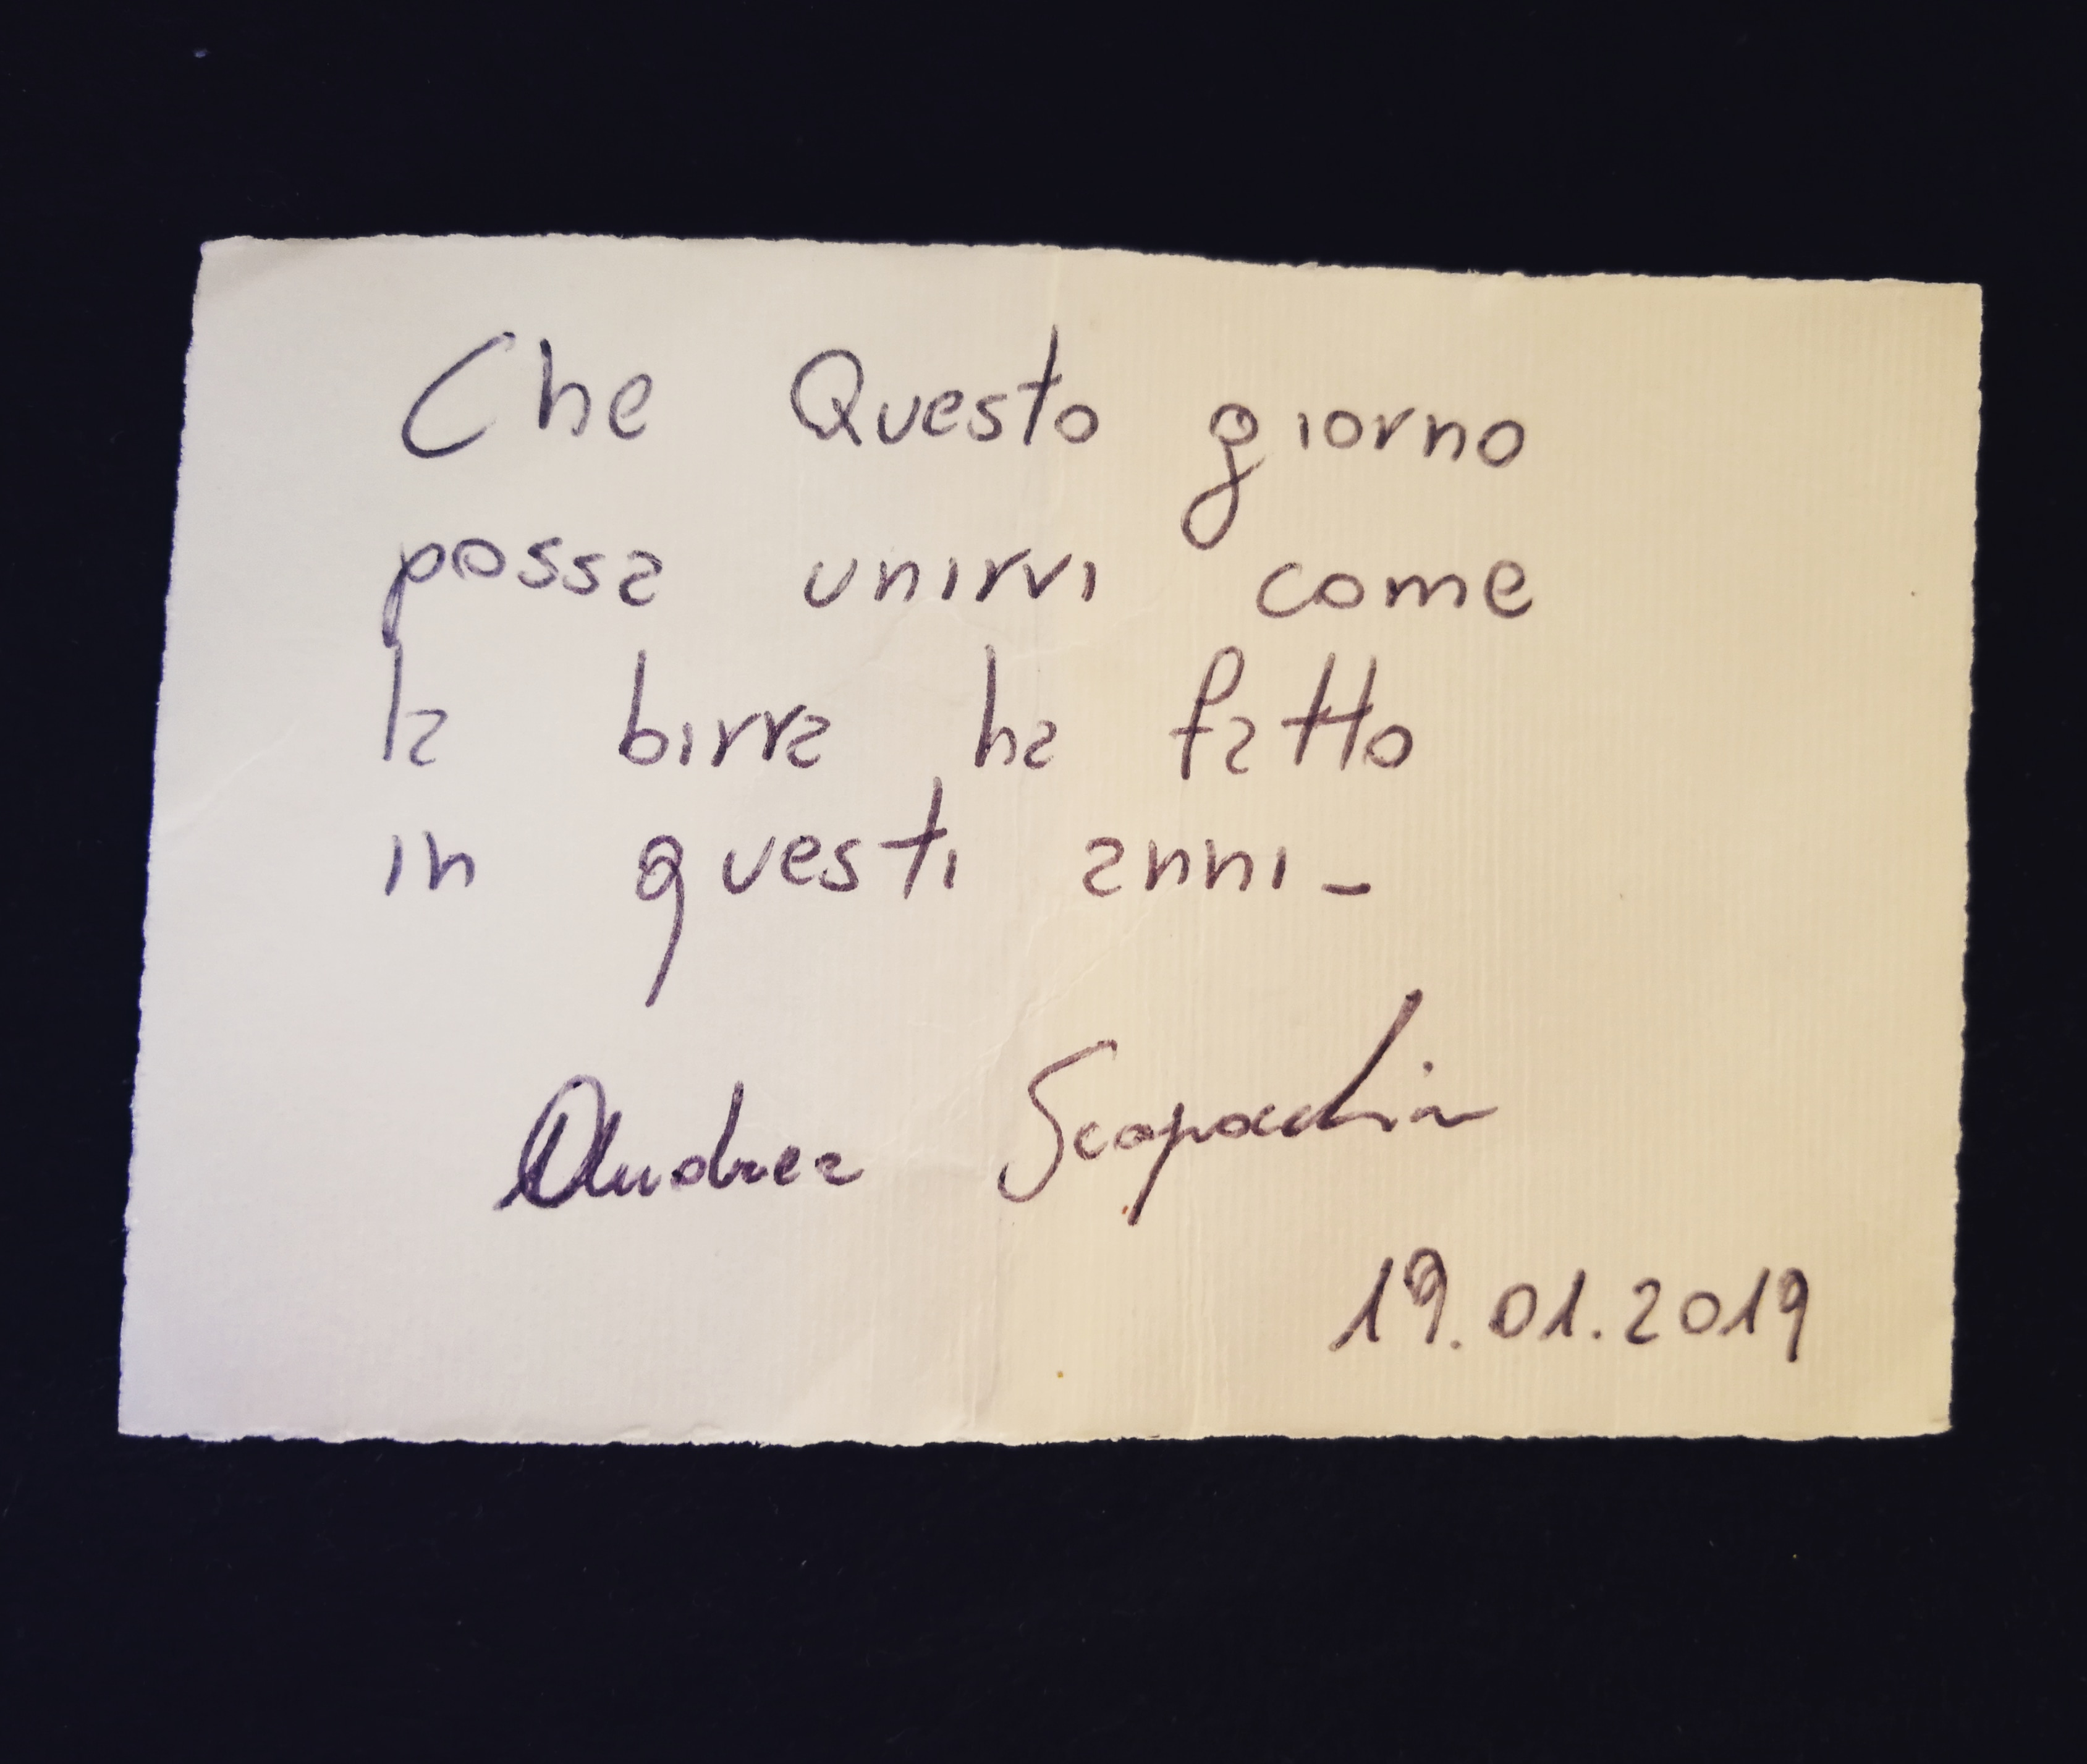 Che Questo giorno
possa unirvi come
la birra ha fatto
in questi anni_
Andrea Scapocchin
19.01.2019